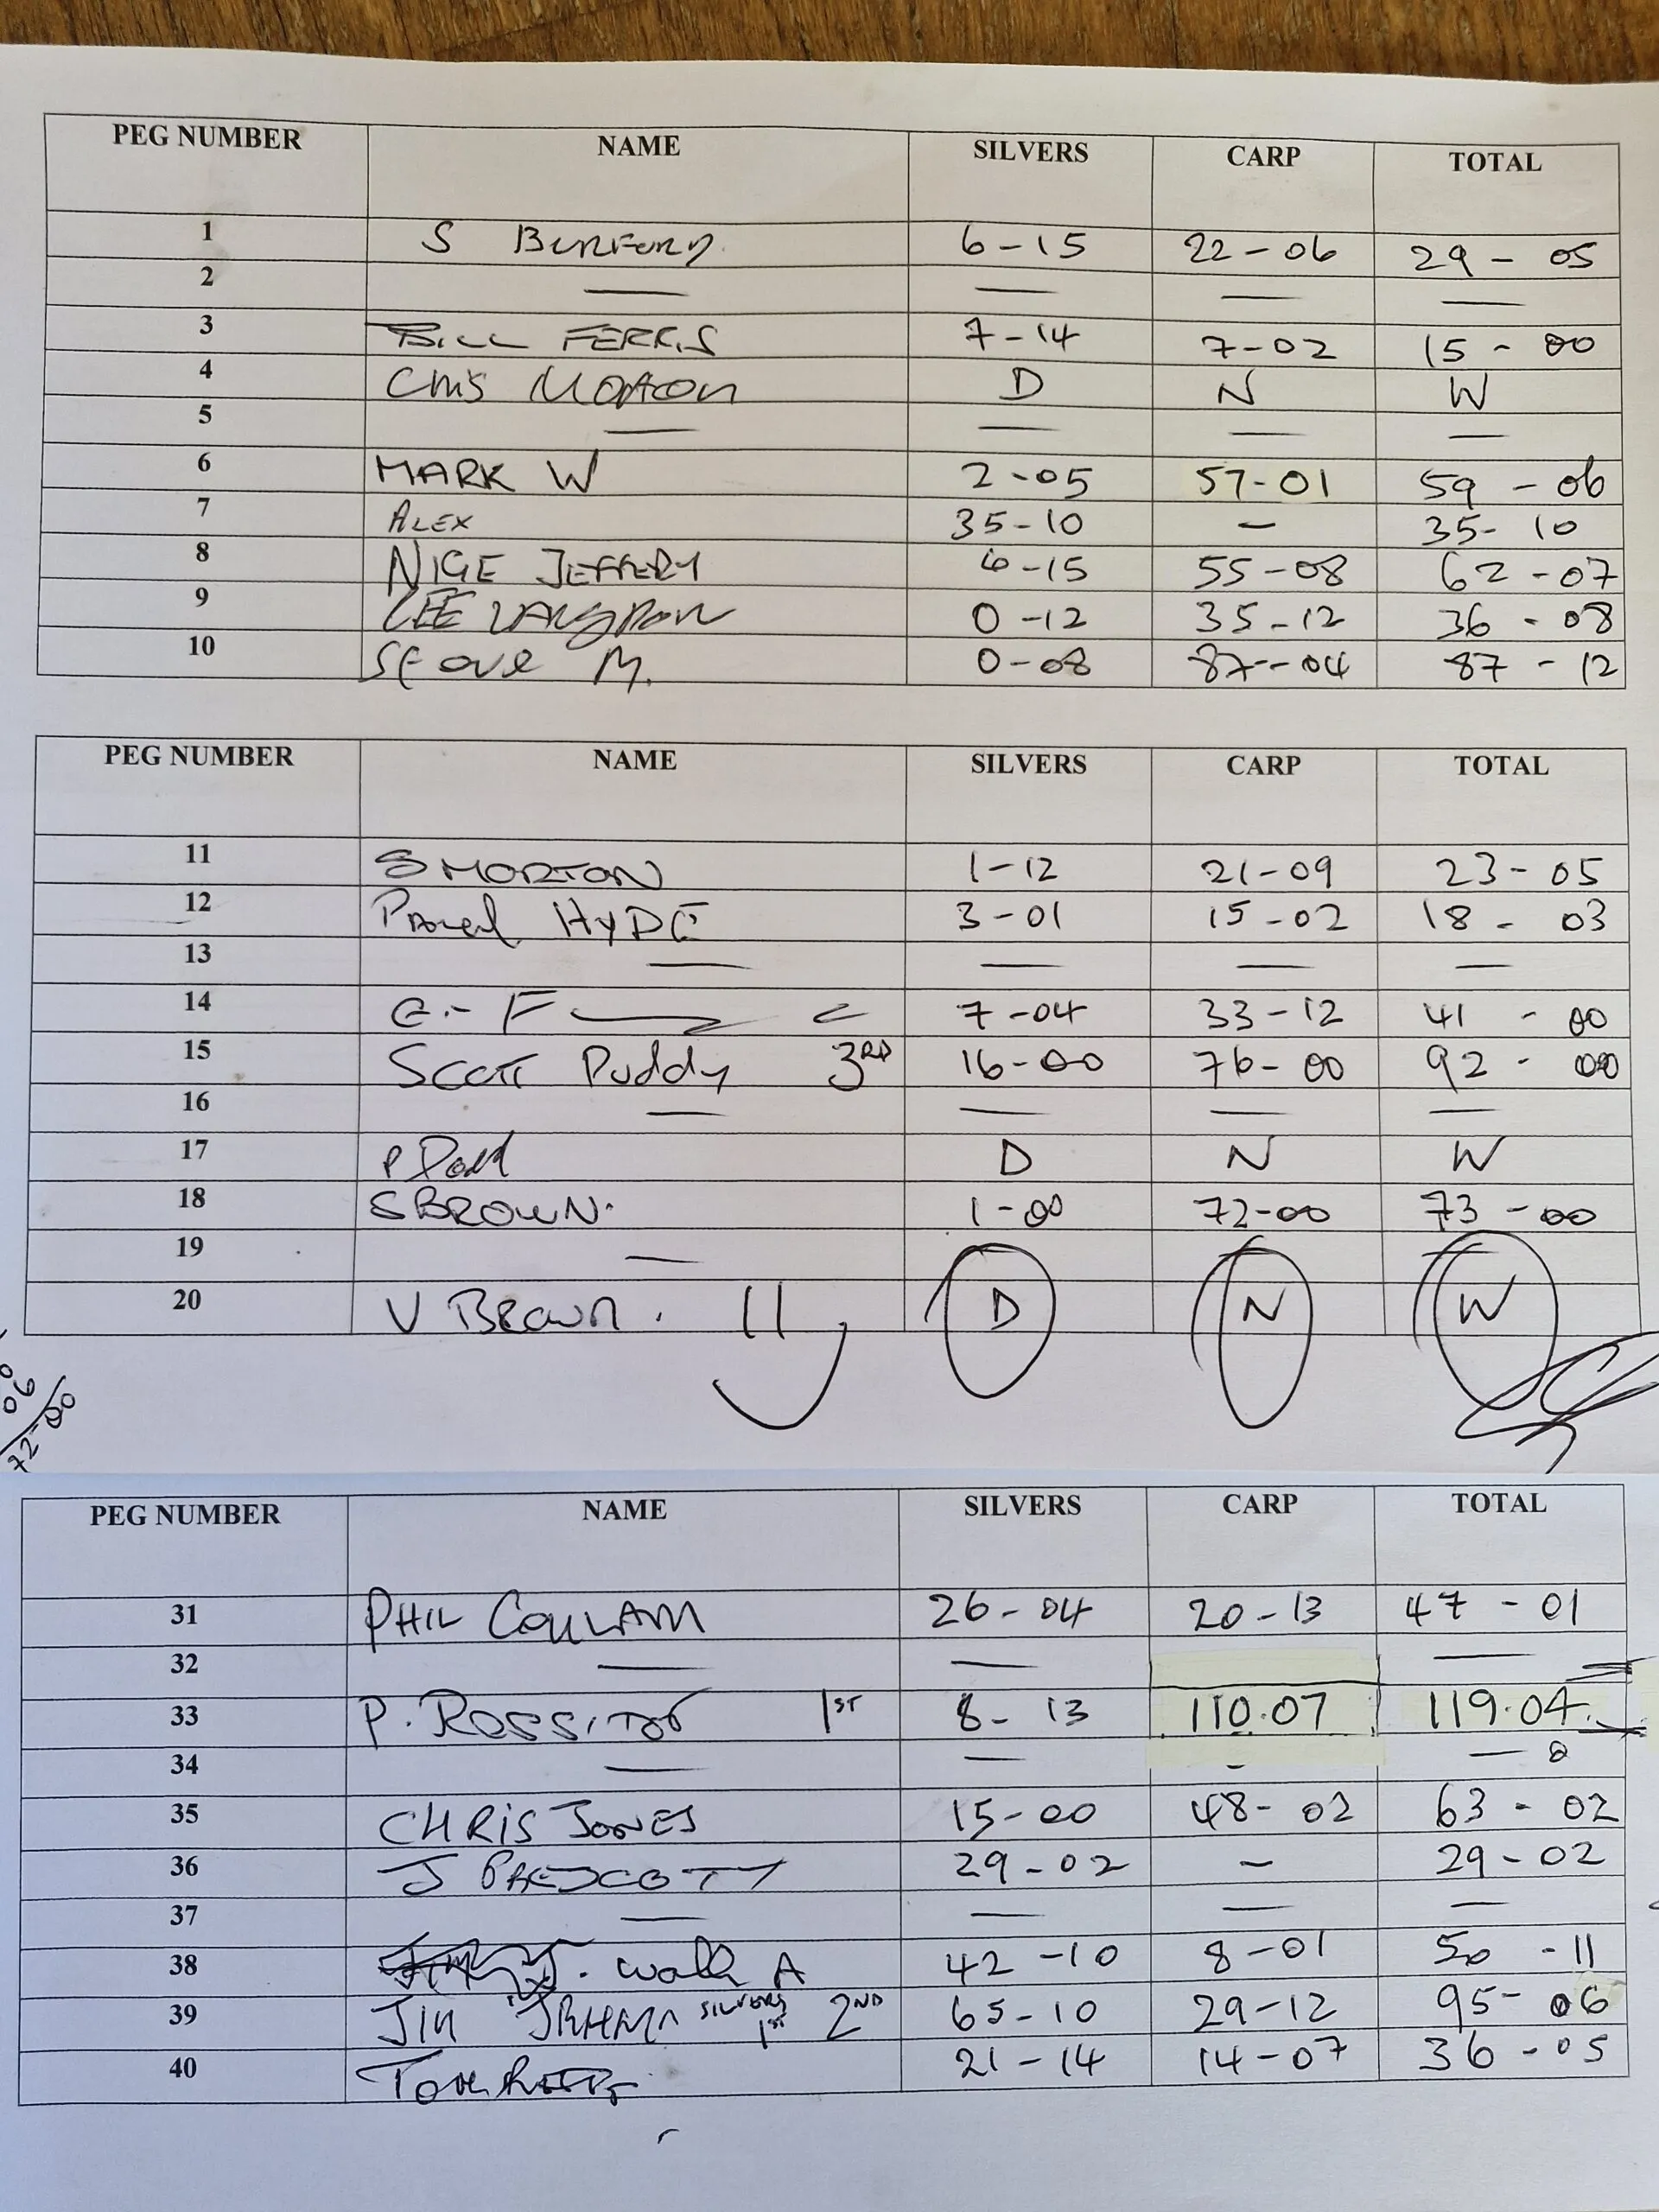 PEG NUMBER NAME SILVERS CARP TOTAL
1 S BURFORD 6-15 22-06 29-05
2 — — — —
3 BILL FERRIS 7-14 7-02 15-00
4 Chris Morton D N W
5 — — — —
6 MARK W 2-05 57-01 59-06
7 ALEX 35-10 — 35-10
8 NIGE JEFFERY 6-15 55-08 62-07
9 LEE 0-12 35-12 36-08
10 Steve M. 0-08 87-04 87-12
PEG NUMBER NAME SILVERS CARP TOTAL
11 S MORTON 1-12 21-09 23-05
12 HYDE 3-01 15-02 18-03
13 — — — —
14 G. F 7-04 33-12 41-00
15 Scott Puddy 3RD 16-00 76-00 92-00
16 — — — —
17 P D N W
18 S BROWN. 1-00 72-00 73-00
19 —
20 V Brown. D N W
06
72-00
PEG NUMBER NAME SILVERS CARP TOTAL
31 PHIL COULAM 26-04 20-13 47-01
32 — — —
33 P. ROSSITOR 1ST 8-13 110.07 119.04
34 — — - —
35 CHRIS JONES 15-00 48-02 63-02
36 J PRESCOTT 29-02 — 29-02
37 — — — —
38 A 42-10 8-01 50-11
39 JIM SILVERS 1ST 2ND 65-10 29-12 95-06
40 Tom 21-14 14-07 36-05